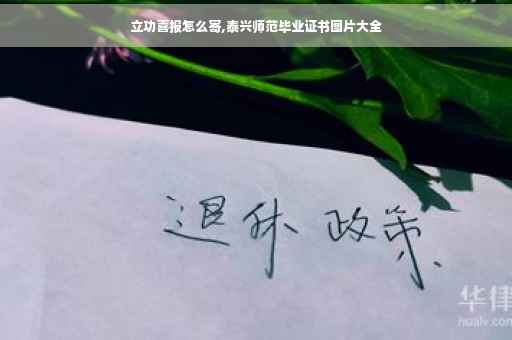 立功喜报怎么寄,泰兴师范毕业证书图片大全
退休 政策
华律
hualv.com